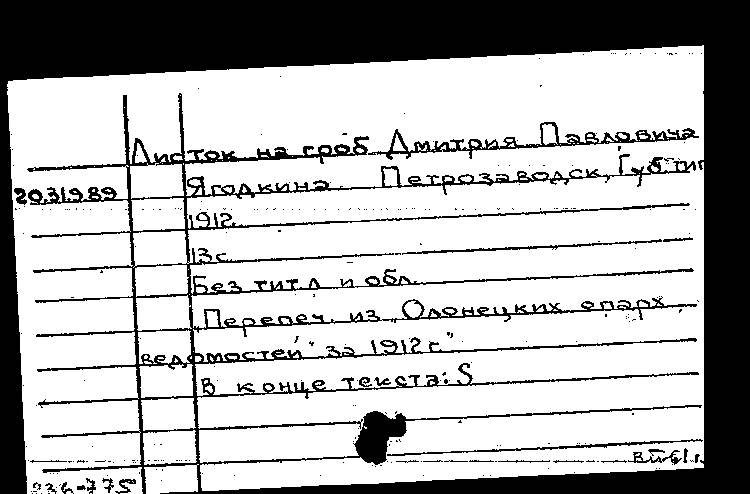 Листок на гроб Дмитрия Павловича
20.31.9.89 Ягодкина. Петрозаводск, Губ. тип
1912.
13 с.
Без тит. л и обл.
"Перепеч. из "Олонецких епарх.
ведомостей" за 1912 г."
В конце текста: S
236-775